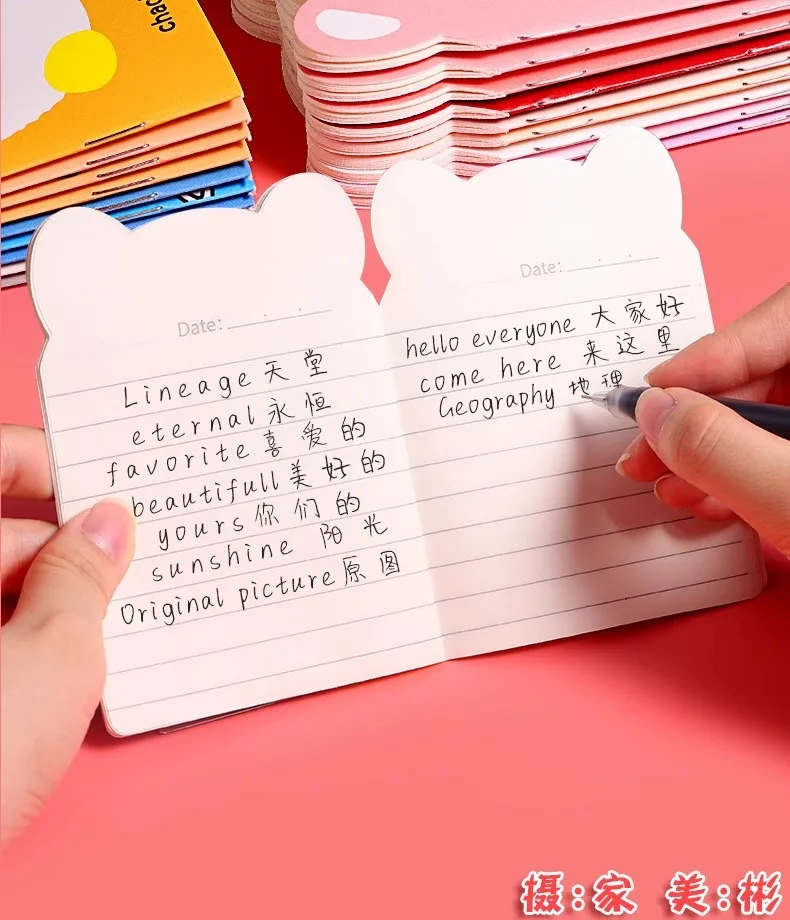 chac
Date:
Lineage 天堂
eternal 永恒
favorite 喜爱的
beautifull 美好的
yours 你们的
sunshine 阳光
Original picture 原图
Date:
hello everyone 大家好
come here 来这里
Geography 地理
摄:家 美:彬